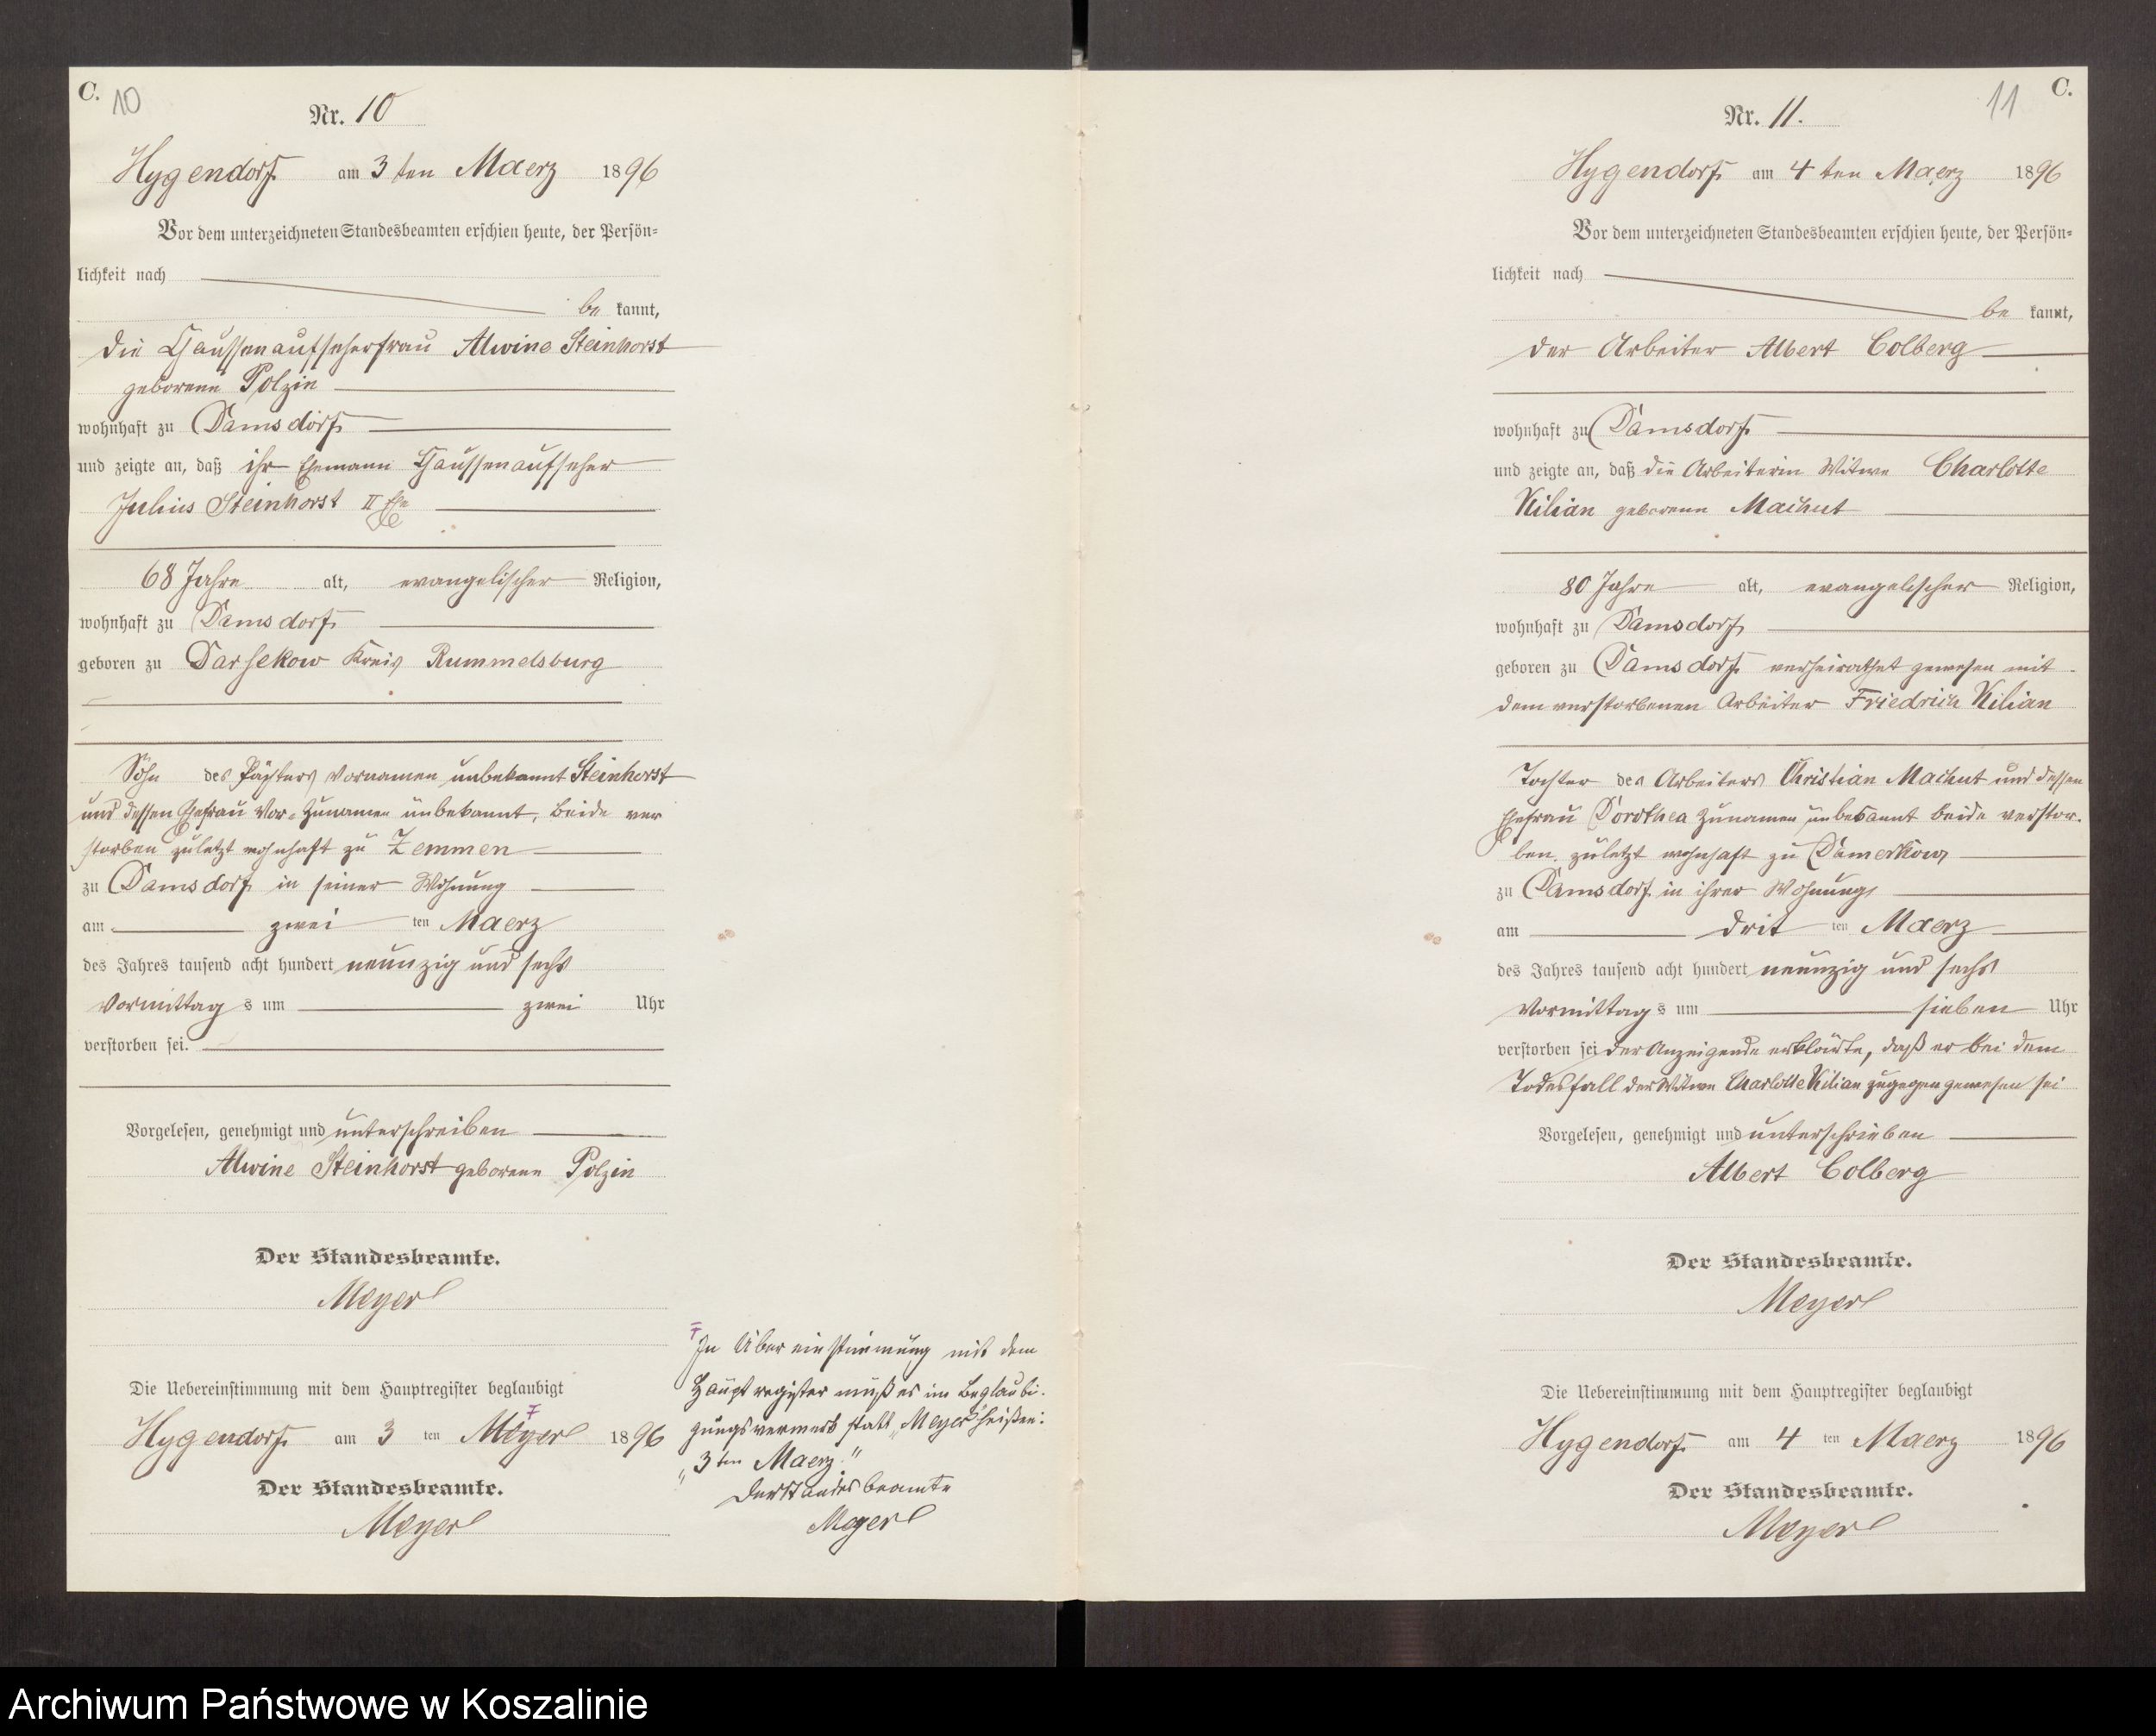 C.
10
Nr. 10
Hygendorf am 3 ten Maerz 1896
Vor dem unterzeichneten Standesbeamten erschien heute, der Persön-
lichkeit nach
be kannt,
die Chaussenaufseherfrau Alwine Steinhorst
geborene Polzin
wohnhaft zu Damsdorf
und zeigte an, daß ihr Ehemann Chaussenaufseher
Julius Steinhorst II Ehe
68 Jahre alt, evangelischer Religion,
wohnhaft zu Damsdorf
geboren zu Darsekow Kreis Rummelsburg
Sohn des Pächters Vornamen unbekannt Steinhorst
und dessen Ehefrau Vor- Zunamen unbekannt, beide ver
storben zuletzt wohnhaft zu Zemmen
zu Damsdorf in seiner Wohnung
am zwei ten Maerz
des Jahres tausend acht hundert neunzig und sechs
Vormittag s um zwei Uhr
verstorben sei.
Vorgelesen, genehmigt und unterschreiben
Alwine Steinhorst geborene Polzin
Der Standesbeamte.
Meyer
Die Uebereinstimmung mit dem Hauptregister beglaubigt
Hygendorf am 3 ten Meyer 1896
Der Standesbeamte.
Meyer
In Übereinstimmung mit dem
Hauptregister muß es im Beglaubi-
gungsvermerk statt „Meyer“ heißen:
„3 ten Maerz.“
Der Standesbeamte
Meyer
11
C.
Nr. 11.
Hygendorf am 4 ten Maerz 1896
Vor dem unterzeichneten Standesbeamten erschien heute, der Persön-
lichkeit nach
be kannt,
der Arbeiter Albert Colberg
wohnhaft zu Damsdorf
und zeigte an, daß die Arbeiterin Witwe Charlotte
Kilian geborene Machut
80 Jahre alt, evangelischer Religion,
wohnhaft zu Damsdorf
geboren zu Damsdorf verheirathet gewesen mit
dem verstorbenen Arbeiter Friedrich Kilian
Tochter des Arbeiters Christian Machut und dessen
Ehefrau Dorothea Zunamen unbekannt beide verstor-
ben. zuletzt wohnhaft zu Damerkow
zu Damsdorf in ihrer Wohnung
am drit ten Maerz
des Jahres tausend acht hundert neunzig und sechs
Vormittag s um sieben Uhr
verstorben sei der Anzeigende erklärte, daß er bei dem
Todesfall der Witwe Charlotte Kilian zugegen gewesen sei
Vorgelesen, genehmigt und unterschrieben
Albert Colberg
Der Standesbeamte.
Meyer
Die Uebereinstimmung mit dem Hauptregister beglaubigt
Hygendorf am 4 ten Maerz 1896
Der Standesbeamte.
Meyer
Archiwum Państwowe w Koszalinie